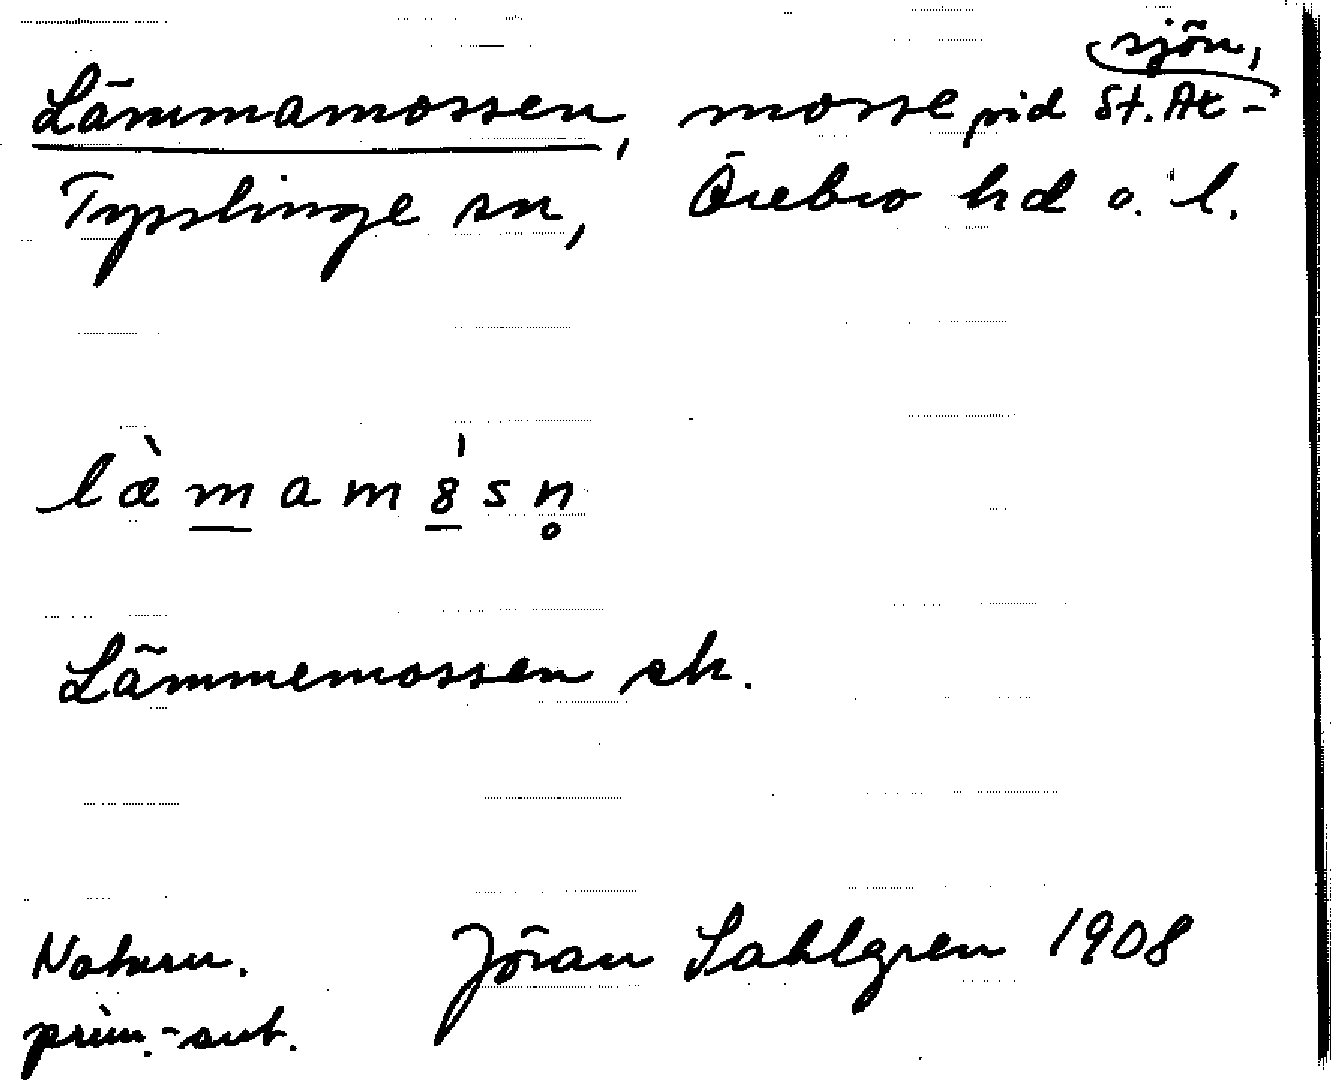 Lämmamossen, mosse vid St. Ax-
sjön,
Tysslinge sn, Örebro hd o. l.
læ̀mamȣ́sn̥
Lämmemossen ek.
Naturn.
Jöran Sahlgren 1908
prim.-aut.